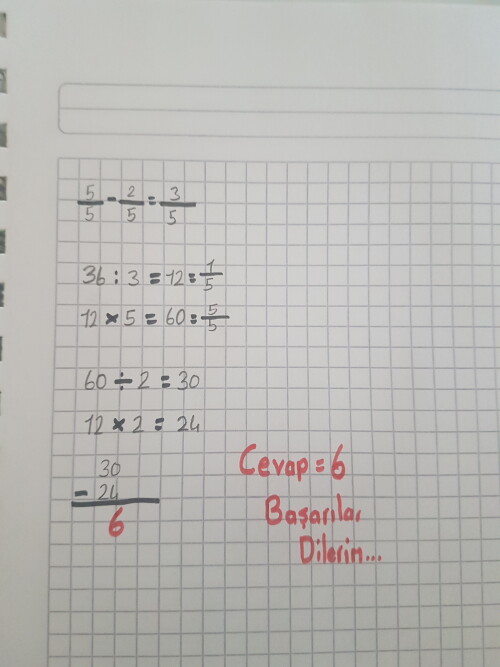 5/5 - 2/5 = 3/5
36 : 3 = 12 = 1/5
12 x 5 = 60 = 5/5
60 ÷ 2 = 30
12 x 2 = 24
30
- 24
6
Cevap = 6
Başarılar
Dilerim...